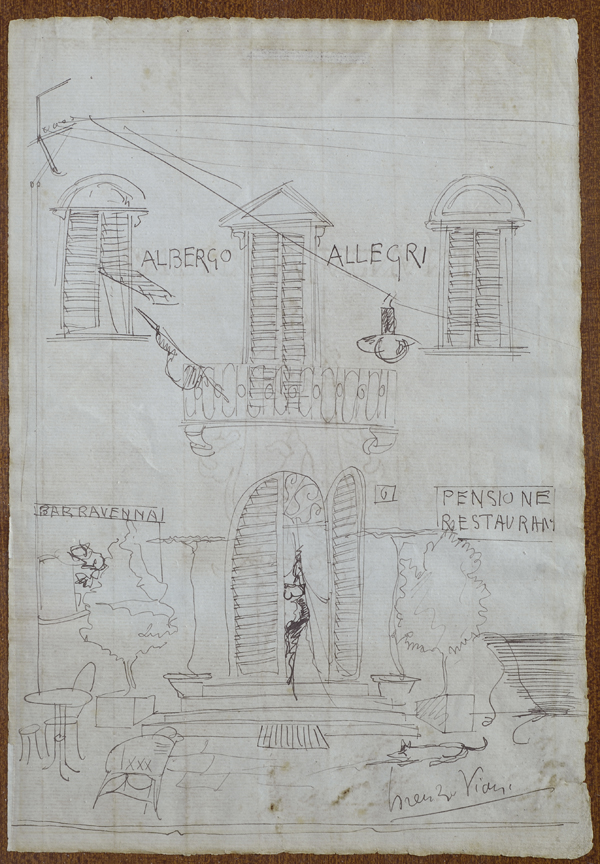 ALBERGO ALLEGRI
6
BAR RAVENNA
PENSIONE
RESTAURANT
XXX
Lorenzo Viani